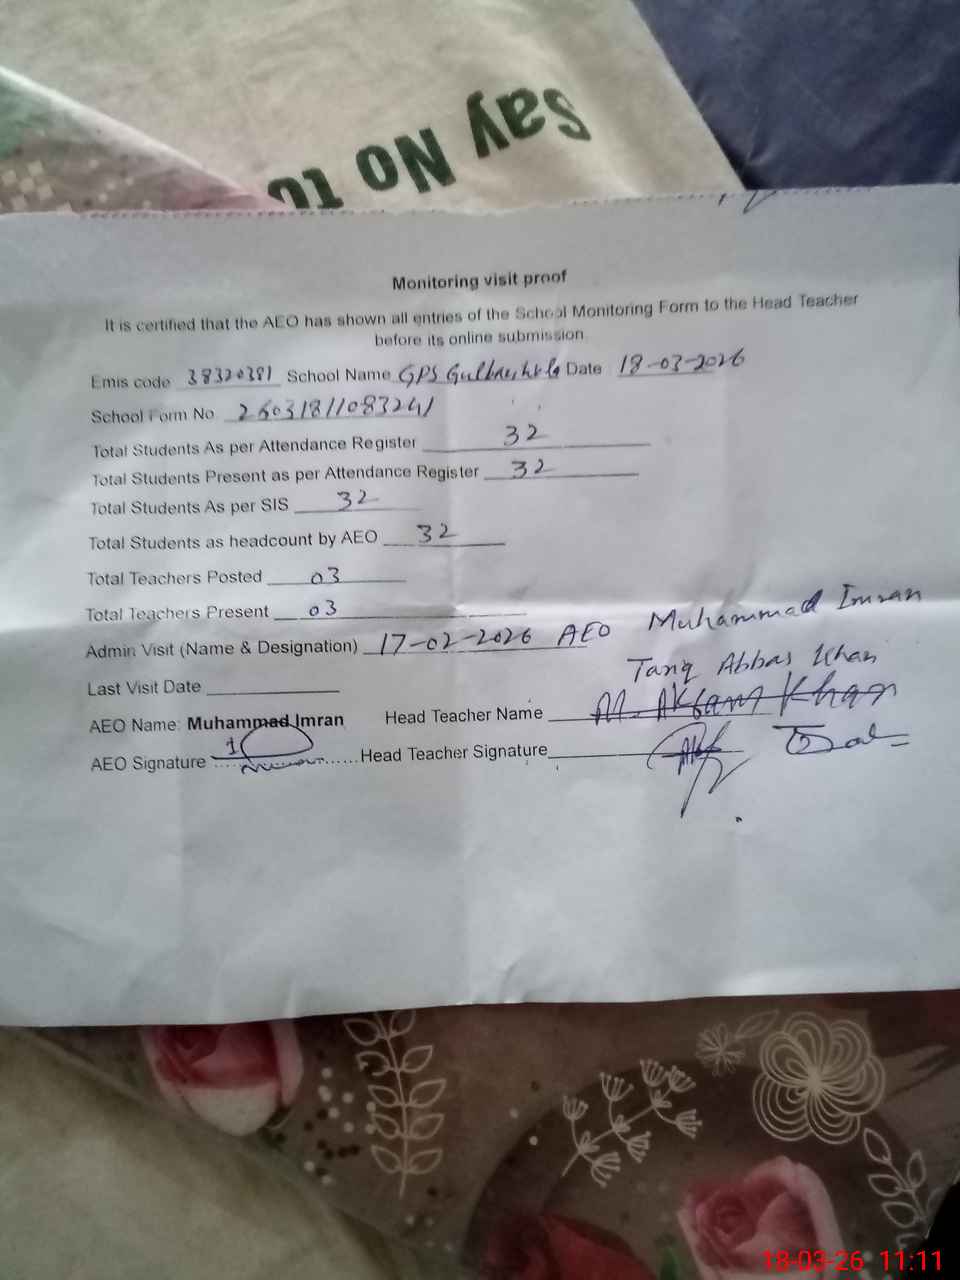 Say No to
Monitoring visit proof
It is certified that the AEO has shown all entries of the School Monitoring Form to the Head Teacher
before its online submission
Emis code 38320381 School Name GPS Date 18-03-2026
School Form No
Total Students As per Attendance Register 32
Total Students Present as per Attendance Register 32
Total Students As per SIS 32
Total Students as headcount by AEO 32
Total Teachers Posted 03
Total Teachers Present 03
Admin Visit (Name & Designation) 17-02-2026 AEO Muhammad Imran
Last Visit Date
Tariq Abbas Khan
AEO Name: Muhammad Imran Head Teacher Name M. Akram Khan
AEO Signature Head Teacher Signature
18-03-26 11:11